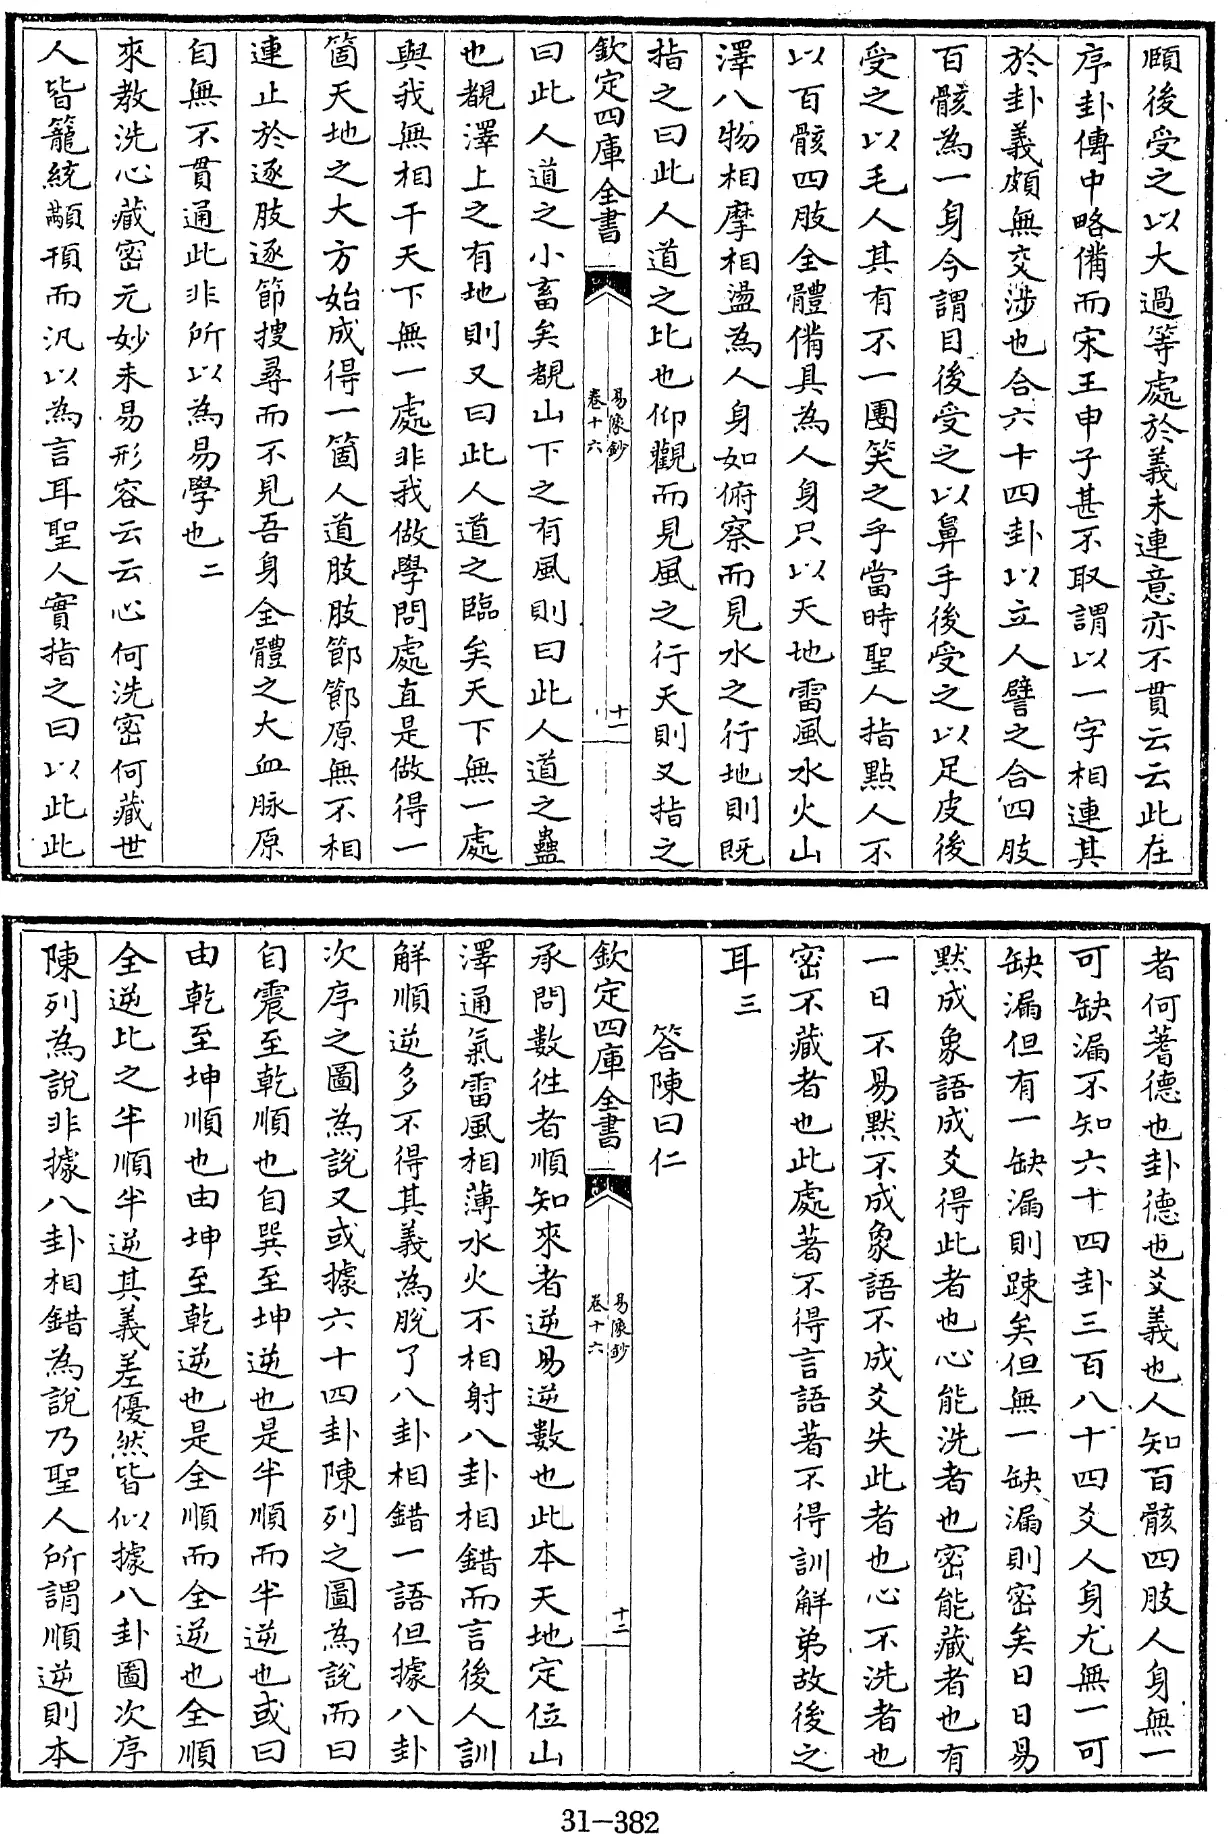 頤後受之以大過等處於義未連意亦不貫云云此在
序卦傳中略備而宋王申子甚不取謂以一字相連其
於卦義頗無交涉也合六十四卦以立人譬之合四肢
百骸為一身今謂目後受之以鼻手後受之以足皮後
受之以毛人其有不一團笑之乎當時聖人指點人不
以百骸四肢全體備具為人身只以天地雷風水火山
澤八物相摩相盪為人身如俯察而見水之行地則既
指之曰此人道之比也仰觀而見風之行天則又指之
欽定四庫全書
易像鈔
卷十六
十一
曰此人道之小畜矣覩山下之有風則曰此人道之蠱
也覩澤上之有地則又曰此人道之臨矣天下無一處
與我無相干天下無一處非我做學問處直是做得一
箇天地之大方始成得一箇人道肢肢節節原無不相
連止於逐肢逐節搜尋而不見吾身全體之大血脉原
自無不貫通此非所以為易學也二
來教洗心藏密元妙未易形容云云心何洗密何藏世
人皆籠統顢頇而汎以為言耳聖人實指之曰以此此
者何蓍德也卦德也爻義也人知百骸四肢人身無一
可缺漏不知六十四卦三百八十四爻人身尤無一可
缺漏但有一缺漏則踈矣但無一缺漏則密矣日日易
黙成象語成爻得此者也心能洗者也密能藏者也有
一日不易黙不成象語不成爻失此者也心不洗者也
密不藏者也此處著不得言語著不得訓解弟故後之
耳三
答陳曰仁
欽定四庫全書
易像鈔
卷十六
十二
承問數徃者順知來者逆易逆數也此本天地定位山
澤通氣雷風相薄水火不相射八卦相錯而言後人訓
解順逆多不得其義為脫了八卦相錯一語但據八卦
次序之圖為說又或據六十四卦陳列之圖為說而曰
自震至乾順也自巽至坤逆也是半順而半逆也或曰
由乾至坤順也由坤至乾逆也是全順而全逆也全順
全逆比之半順半逆其義差優然皆似據八卦圖次序
陳列為說非據八卦相錯為說乃聖人所謂順逆則本
31—382